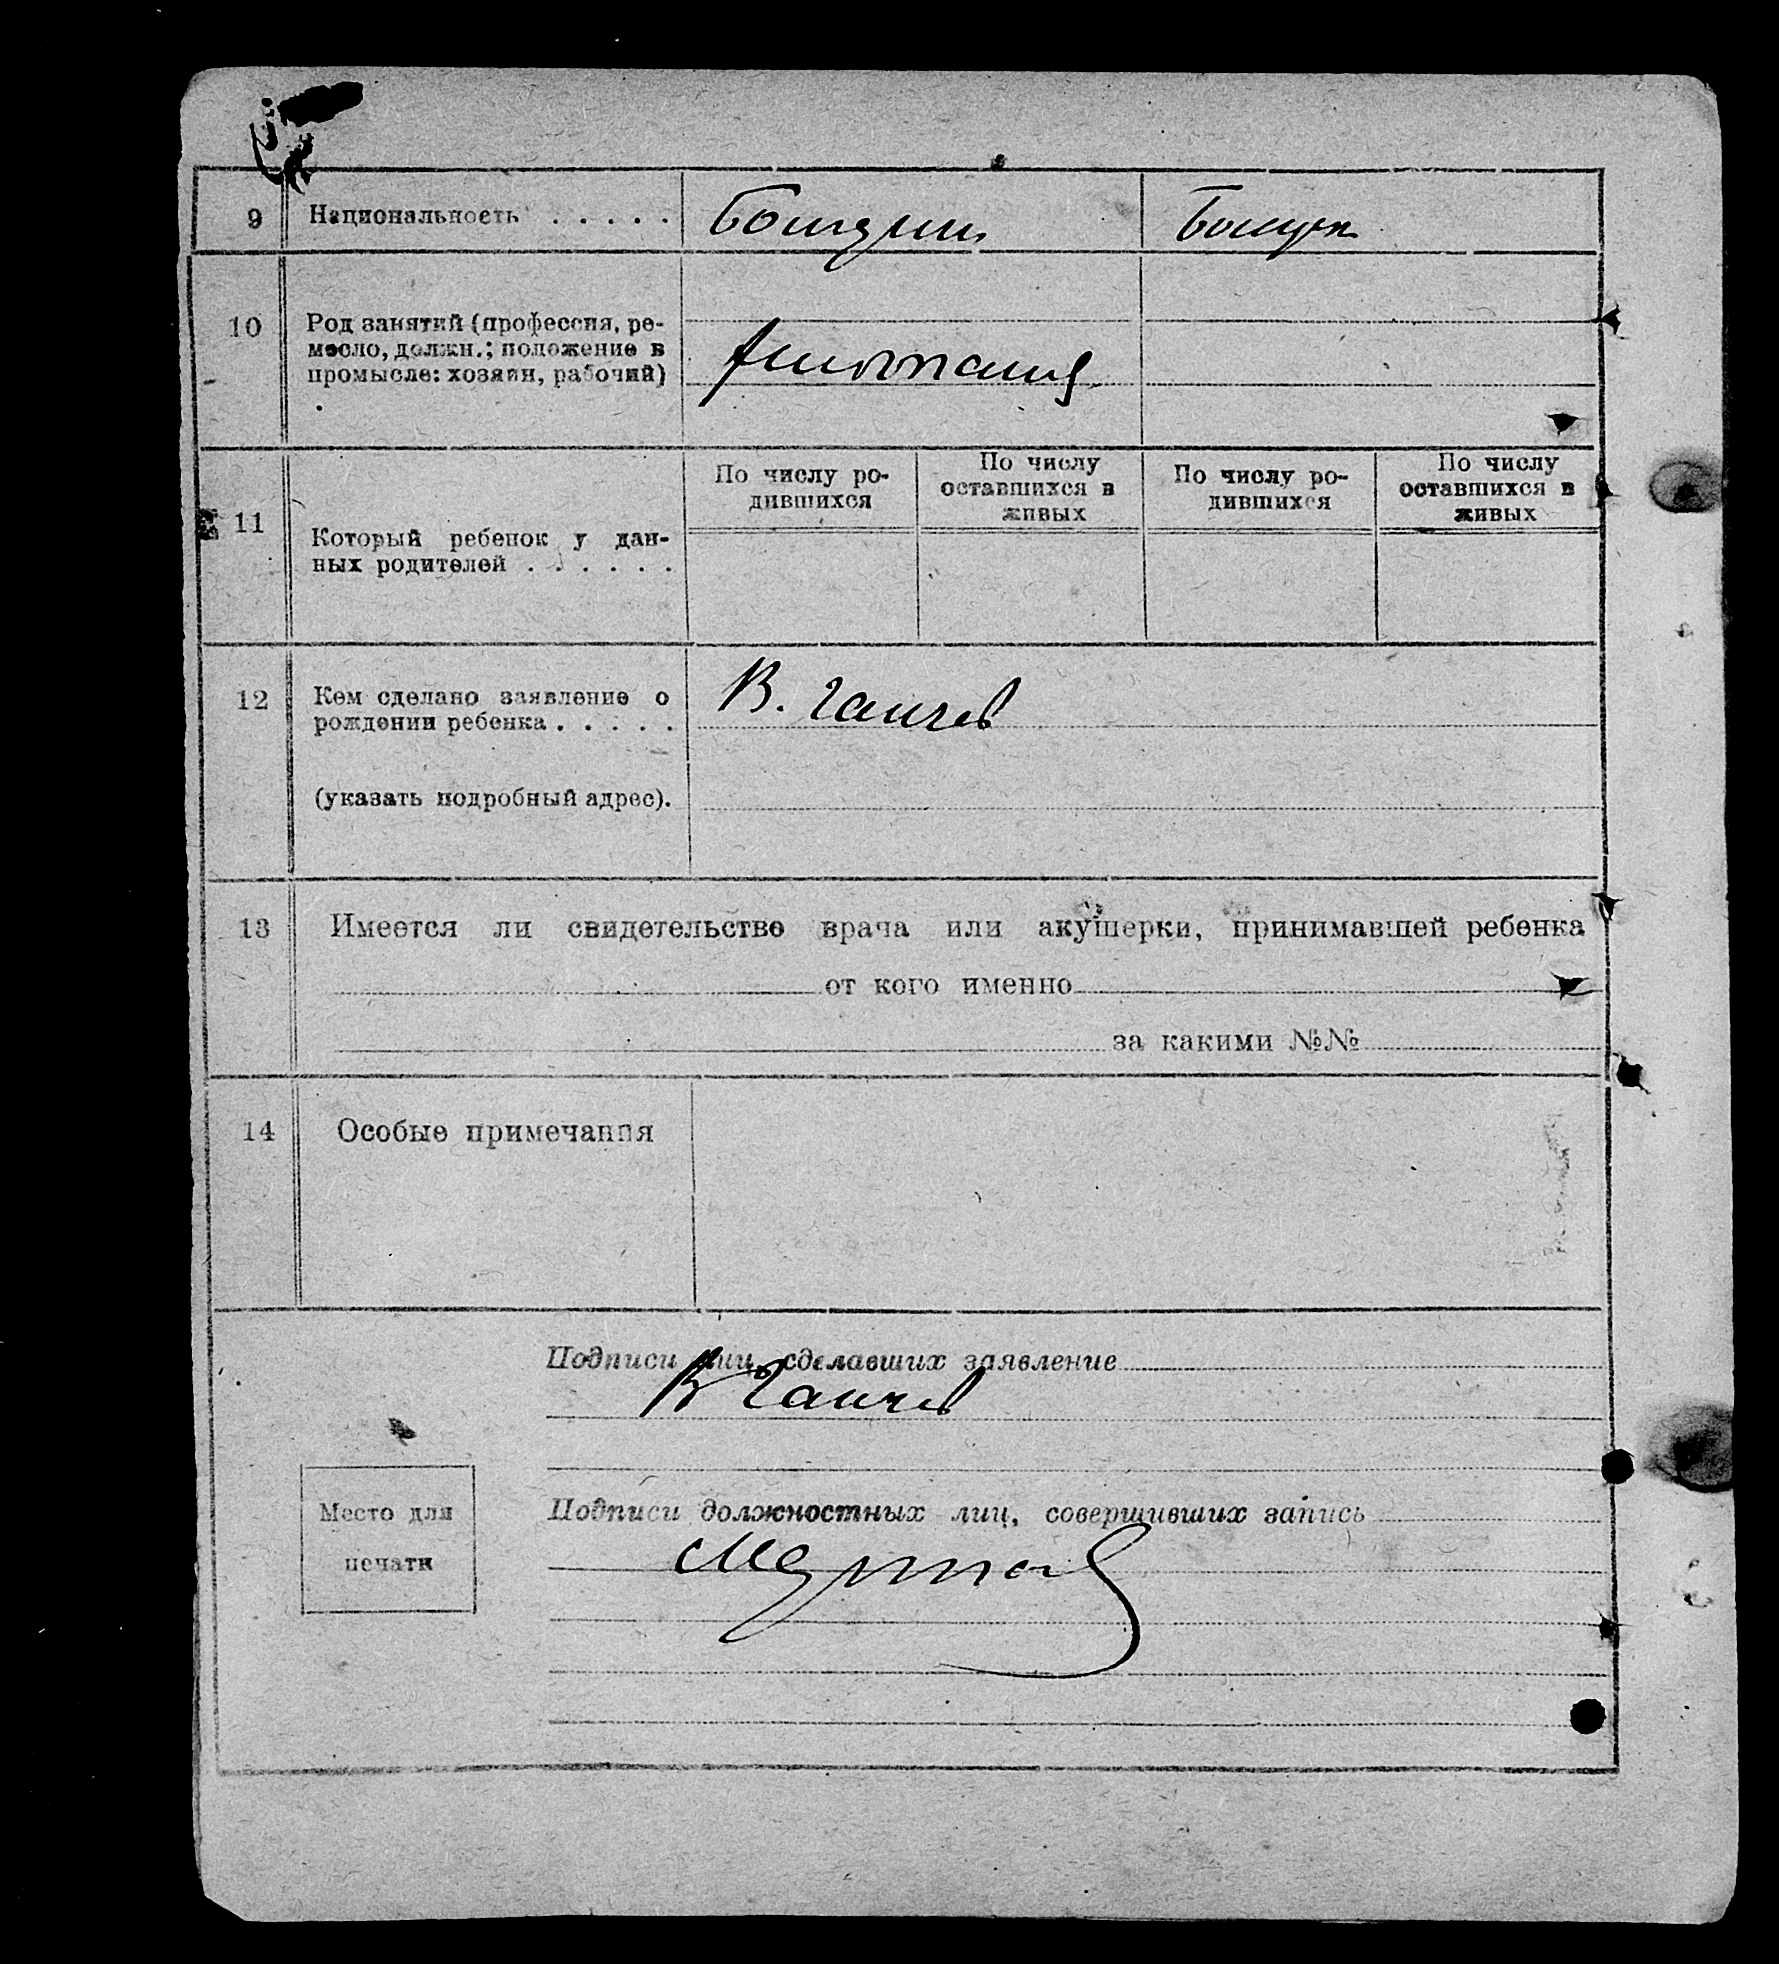 9 Национальность . . . . .
10 Род занятий (профессия, ре-
месло, должн.; положение в
промысле: хозяин, рабочий)
11 Который ребенок у дан-
ных родителей . . . . . .
По числу ро-
дившихся
По числу
оставшихся в
живых
По числу ро-
дившихся
По числу
оставшихся в
живых
12 Кем сделано заявление о
рождении ребенка . . . . .
(указать подробный адрес).
В. Гаичев
13 Имеется ли свидетельство врача или акушерки, принимавшей ребенка
от кого именно
за какими №№
14 Особые примечания
Подписи лиц, сделавших заявление
В Гаичев
Место для
печати
Подписи должностных лиц, совершивших запись